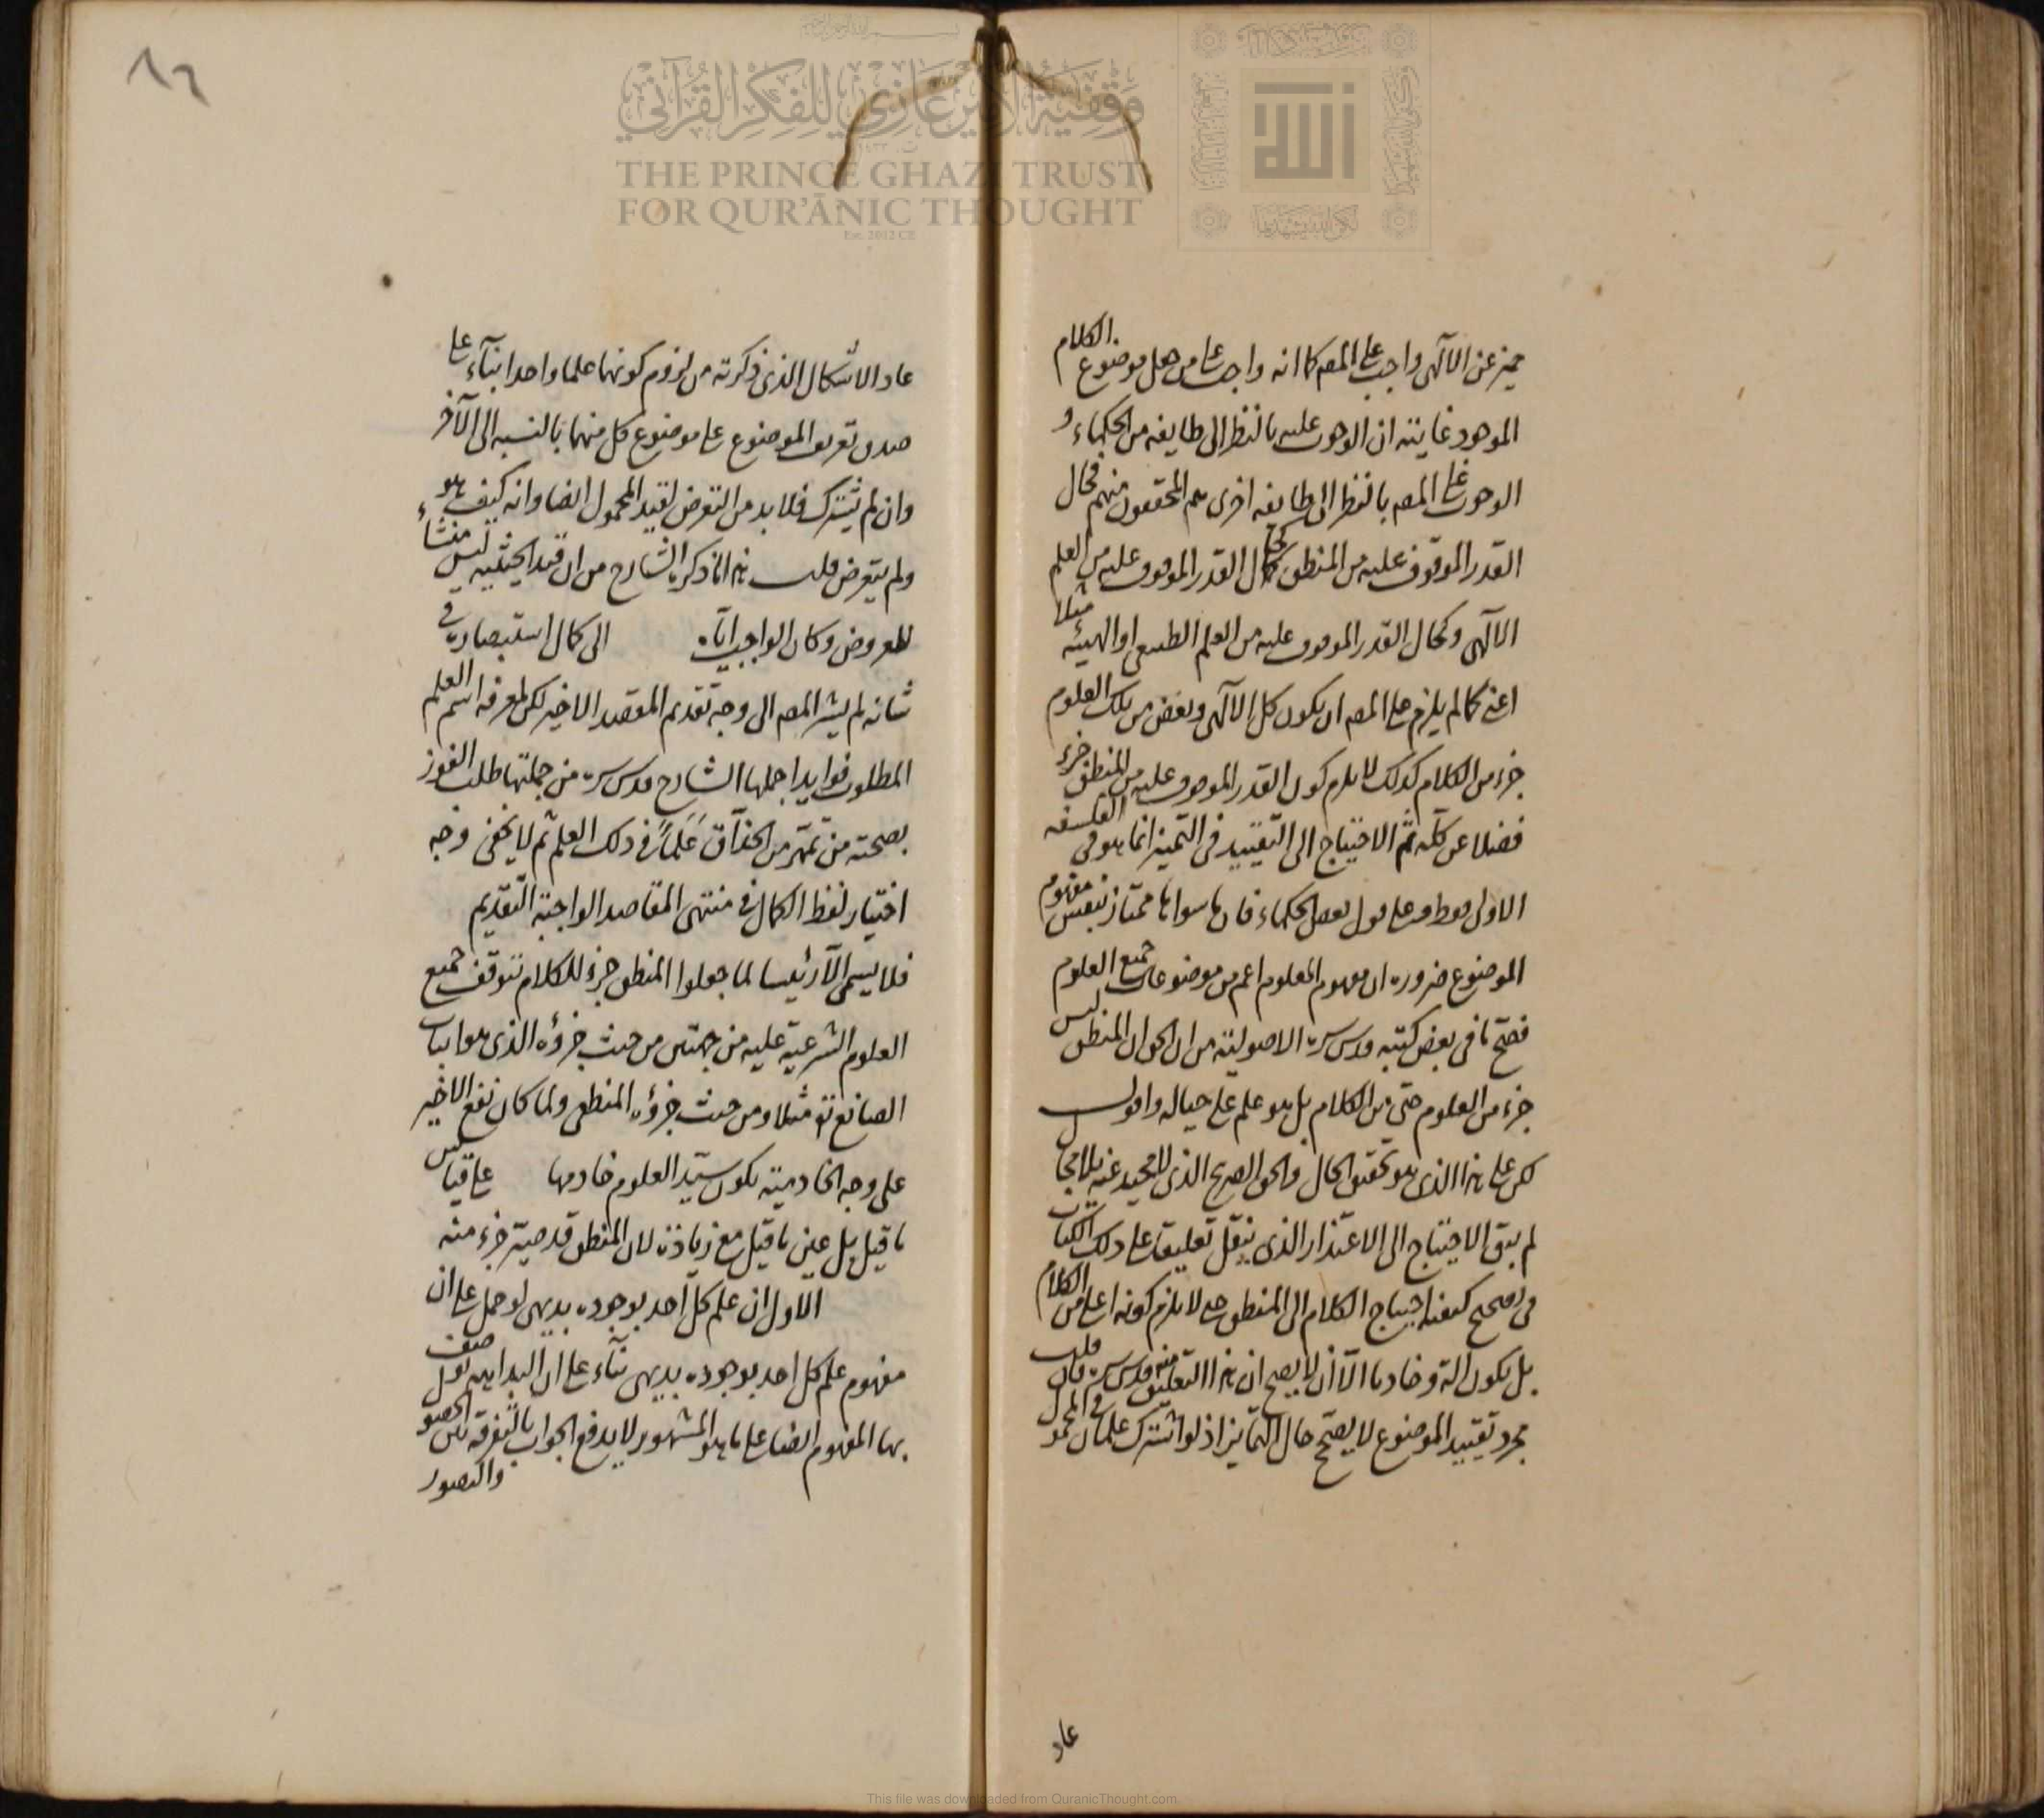 مميز عن الالهى واجب على المصه كما انه واجب على من جعل موضوع الكلام
الموجود غايته ان الوجوب عليه بالنظر الى طايفه من الحكماء و
الوجوب على المصه بالنظر الى طايفه اخرى هم المحققون منهم فحال
القدر الموقوف عليه من المنطق كحال القدر الموقوف عليه من العلم
الالهى وكحال القدر الموقوف عليه من العلم الطبيعى او الهيئه مثلا
اعنى كما لم يلزم على المصه ان يكون كل الالهى وبعض من تلك العلوم
جزء من الكلام كذلك لا يلزم كون القدر الموقوف عليه من المنطق جزء
فضلا عن كله ثم الاحتياج الى التقييد فى التميز انما هو فى الفلسفه
الاولى فقط وعلى قول بعض الحكماء فان ما سواها ممتاز بنفس مفهوم
الموضوع ضروره ان مفهوم المعلوم اعم من موضوعات جميع العلوم
فصح ما فى بعض كتبه قدس سره الاصوليه من ان الحق ان المنطق ليس
جزء من العلوم حتى من الكلام بل هو علم على حياله واقول
لكن على هذا الذى هو تحقيق الحال والحق الصريح الذى لا محيد عنه بلا
لم يبق الاحتياج الى الاعتذار الذى ينقل تعليقه على ذلك الكتاب
فى تصحيح كيفيه احتياج الكلام الى المنطق حتى لا يلزم كونه اعلى من الكلام
بل يكون آلة وخادما الا ان لا يصح ان هذا التعليق منه قدس سره فان قلت
مجرد تقييد الموضوع لا يصحح حال التمايز اذ لو اشترك علمان فى المحمول
عاد
٨٦
عاد الاشكال الذى ذكرته من لزوم كونهما علما واحدا بناء على
صدق تعريف الموضوع على موضوع كل منهما بالنسبه الى الآخر
وان لم يشترك فلا بد من التعرض لقيد المحمول ايضا وانه كيف هو
ولم يتعرض قلت هذا ما ذكره الشارح من ان قيد الحيثيه ليس منشاء
للعروض وكان الواجب الى كمال استبصاره فى
شانه لم يشر المصه الى وجه تقديم المقصد الاخير لكن لمعرفه اسم العلم
المطلوب فوايد اجملها الشارح قدس سره من جملتها طلب الفوز
بصحته من تمهر من الحذاق علما فى ذلك العلم ثم لا يخفى وجه
اختيار لفظ الكمال فى منتهى المقاصد الواجبة التقديم
فلا يسمى الا رئيسا لما جعلوا المنطق جزء للكلام تتوقف جميع
العلوم الشرعيه عليه من جهتين من حيث جزؤه الذى هو اثبات
الصانع تع مثلا ومن حيث جزؤه المنطقى ولما كان نفع الاخير
على وجه الخادميه يكون سيد العلوم خادمها على قياس ليس
ما قيل بل عين ما قيل مع زيادة لان المنطق قد صير جزء منه
الاول ان علم كل احد بوجوده بديهى لو حمل على ان
مفهوم علم كل احد بوجوده بديهى بناء على ان البداهه
بها المفهوم ايضا على ما هو المشهور لا يدفع الجواب بالتفرقه بين الحصول
والتصور
THE PRINCE GHAZI TRUST
FOR QUR'ĀNIC THOUGHT
Est. 2012 CE
وقفية الأمير غازي للفكر القرآني
الله
This file was downloaded from QuranicThought.com